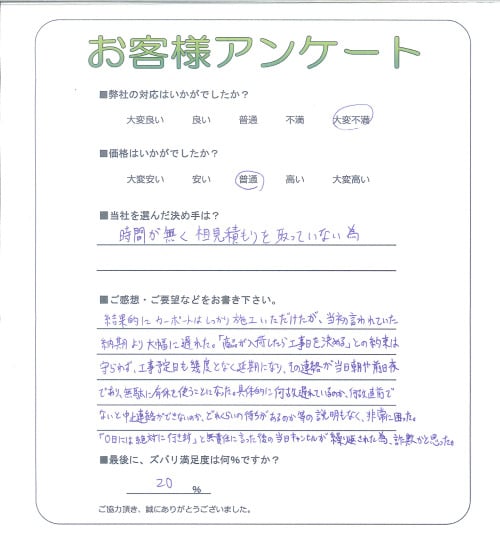 お客様アンケート
■弊社の対応はいかがでしたか？
大変良い 良い 普通 不満 大変不満
■価格はいかがでしたか？
大変安い 安い 普通 高い 大変高い
■当社を選んだ決め手は？
時間が無く相見積もりを取っていない為
■ご感想・ご要望などをお書き下さい。
結果的にカーポートはしっかり施工いただけたが、当初言われていた
納期より大幅に遅れた。「商品が入荷したら工事日を決める」との約束は
守られず、工事予定日も幾度となく延期になり、その連絡が当日朝や前日夜
であり、無駄に有休を使うことになった。具体的に何故遅れているのか、何故直前で
ないと中止連絡ができないのか、どれくらいの待ちがあるのか等の説明もなく、非常に困った。
「〇日には絶対に行きます」と無責任に言った後の当日キャンセルが繰り返された為、詐欺かと思った。
■最後に、ズバリ満足度は何%ですか？
20 %
ご協力頂き、誠にありがとうございました。